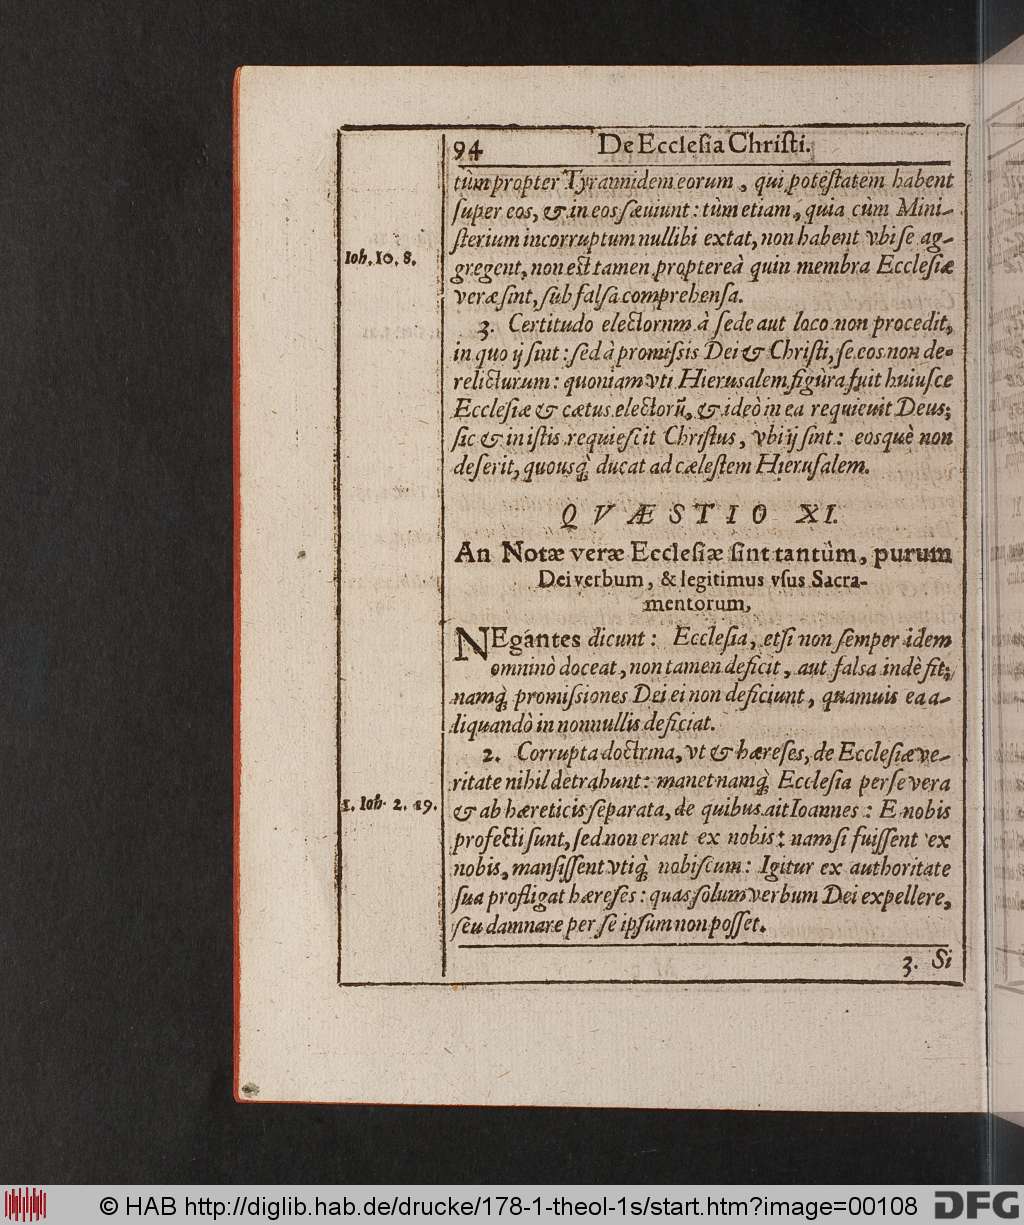 94 De Ecclesia Christi.
tùm propter Tyrannidem eorum, qui potestatem habent
super eos, & in eos sæuiunt: tùm etiam, quia cùm Mini-
sterium incorruptum nullibi extat, non habent vbi se ag-
Ioh. 10. 8.
gregent, non est tamen proptereà quin membra Ecclesiæ
veræ sint, sub falsa comprehensa.
3. Certitudo electornm à sede aut loco non procedit,
in quo ij sint: sed à promissis Dei & Christi, se eos non de-
relicturum: quoniam vti Hierusalem figùra fuit huiusce
Ecclesiæ & cætus electorũ, & ideò in ea requieuit Deus;
sic & in istis requiescit Christus, vbi ij sint: eosquè non
deserit, quousq̀; ducat ad cælestem Hierusalem.
QVÆSTIO XI.
An Notæ veræ Ecclesiæ sint tantùm, purum
Dei verbum, & legitimus vsus Sacra-
mentorum,
NEgántes dicunt: Ecclesia, etsi non semper idem
omninò doceat, non tamen deficit, aut falsa indè fit;
namq̀; promissiones Dei ei non deficiunt, quamuis ea a-
liquandò in nonnullis deficiat.
2. Corrupta doctrina, vt & hæreses, de Ecclesiæ ve-
ritate nihil detrahunt: manet namq̀; Ecclesia per se vera
1. Ioh. 2. 19.
& ab hæreticis separata, de quibus ait Ioannes: E nobis
profecti sunt, sed non erant ex nobis: nam si fuissent ex
nobis, mansissent vtiq̀; nobiscum: Igitur ex authoritate
sua profligat hæreses: quas solum verbum Dei expellere,
seu damnare per se ipsum non posset.
3. Si
© HAB http://diglib.hab.de/drucke/178-1-theol-1s/start.htm?image=00108
DFG